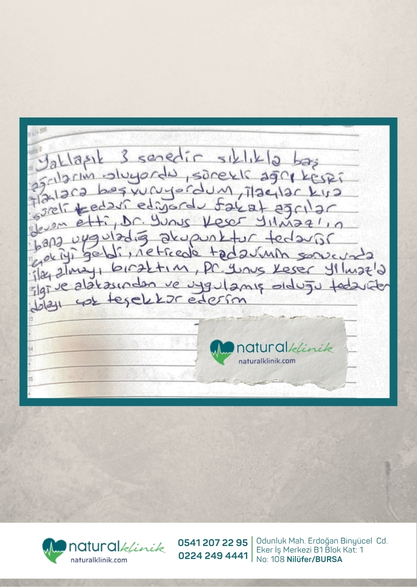 Yaklaşık 3 senedir sıklıkla baş
ağrılarım oluyordu, sürekli ağrı kesici
ilaçlara başvuruyordum, ilaçlar kısa
süreli tedavi ediyordu fakat ağrılar
devam etti, Dr. Yunus Keser Yılmaz'ın
bana uyguladığı akupunktur tedavisi
çok iyi geldi, neticede tedavimin sonucunda
ilaç almayı bıraktım, Dr. Yunus Keser Yılmaz'a
ilgi ve alakasından ve uygulamış olduğu tedaviden
dolayı çok teşekkür ederim
naturalklinik
naturalklinik.com
naturalklinik
naturalklinik.com
0541 207 22 95
0224 249 4441
Odunluk Mah. Erdoğan Binyücel Cd.
Eker İş Merkezi B1 Blok Kat: 1
No: 108 Nilüfer/BURSA